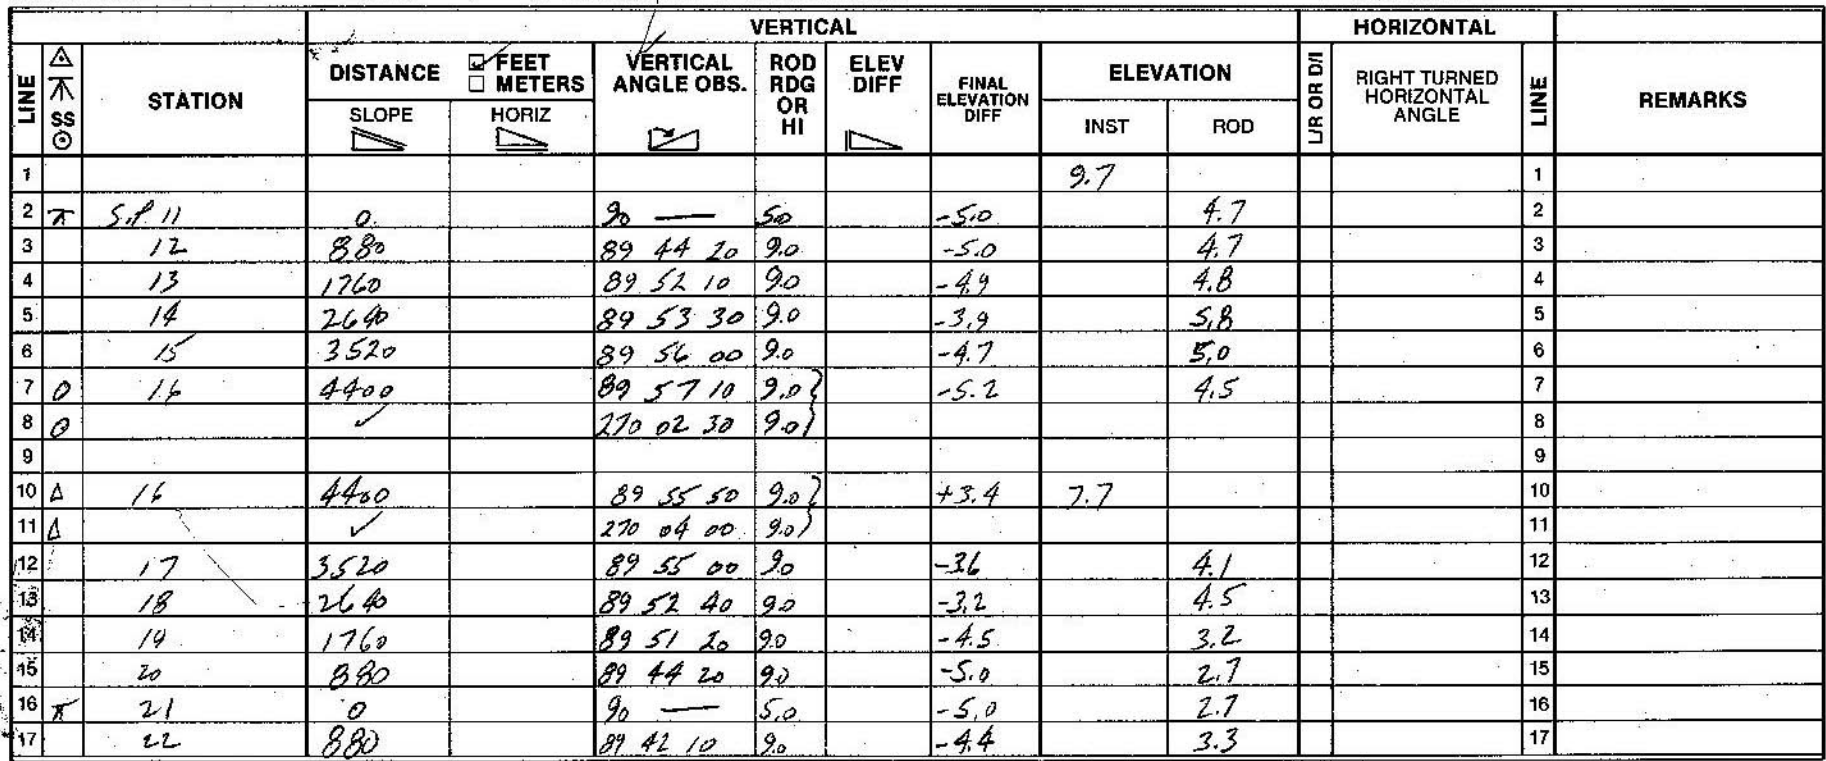 VERTICAL HORIZONTAL
LINE SS STATION DISTANCE FEET METERS VERTICAL ANGLE OBS. ROD RDG OR HI ELEV DIFF FINAL ELEVATION DIFF ELEVATION L/R OR D/I RIGHT TURNED HORIZONTAL ANGLE LINE REMARKS
SLOPE HORIZ INST ROD
1 9.7 1
2 S.P. 11 0. 90 — 5.0 -5.0 4.7 2
3 12 880 89 44 20 9.0 -5.0 4.7 3
4 13 1760 89 52 10 9.0 -4.9 4.8 4
5 14 2640 89 53 30 9.0 -3.9 5.8 5
6 15 3520 89 56 00 9.0 -4.7 5.0 6
7 16 4400 89 57 10 9.0 } -5.2 4.5 7
8 ✓ 270 02 30 9.0 } 8
9 9
10 △ 16 4400 89 55 50 9.0 } +3.4 7.7 10
11 △ ✓ 270 04 00 9.0 } 11
12 17 3520 89 55 00 9.0 -3.6 4.1 12
13 18 2640 89 52 40 9.0 -3.2 4.5 13
14 19 1760 89 51 20 9.0 -4.5 3.2 14
15 20 880 89 44 20 9.0 -5.0 2.7 15
16 21 0 90 — 5.0 -5.0 2.7 16
17 22 880 89 42 10 9.0 -4.4 3.3 17